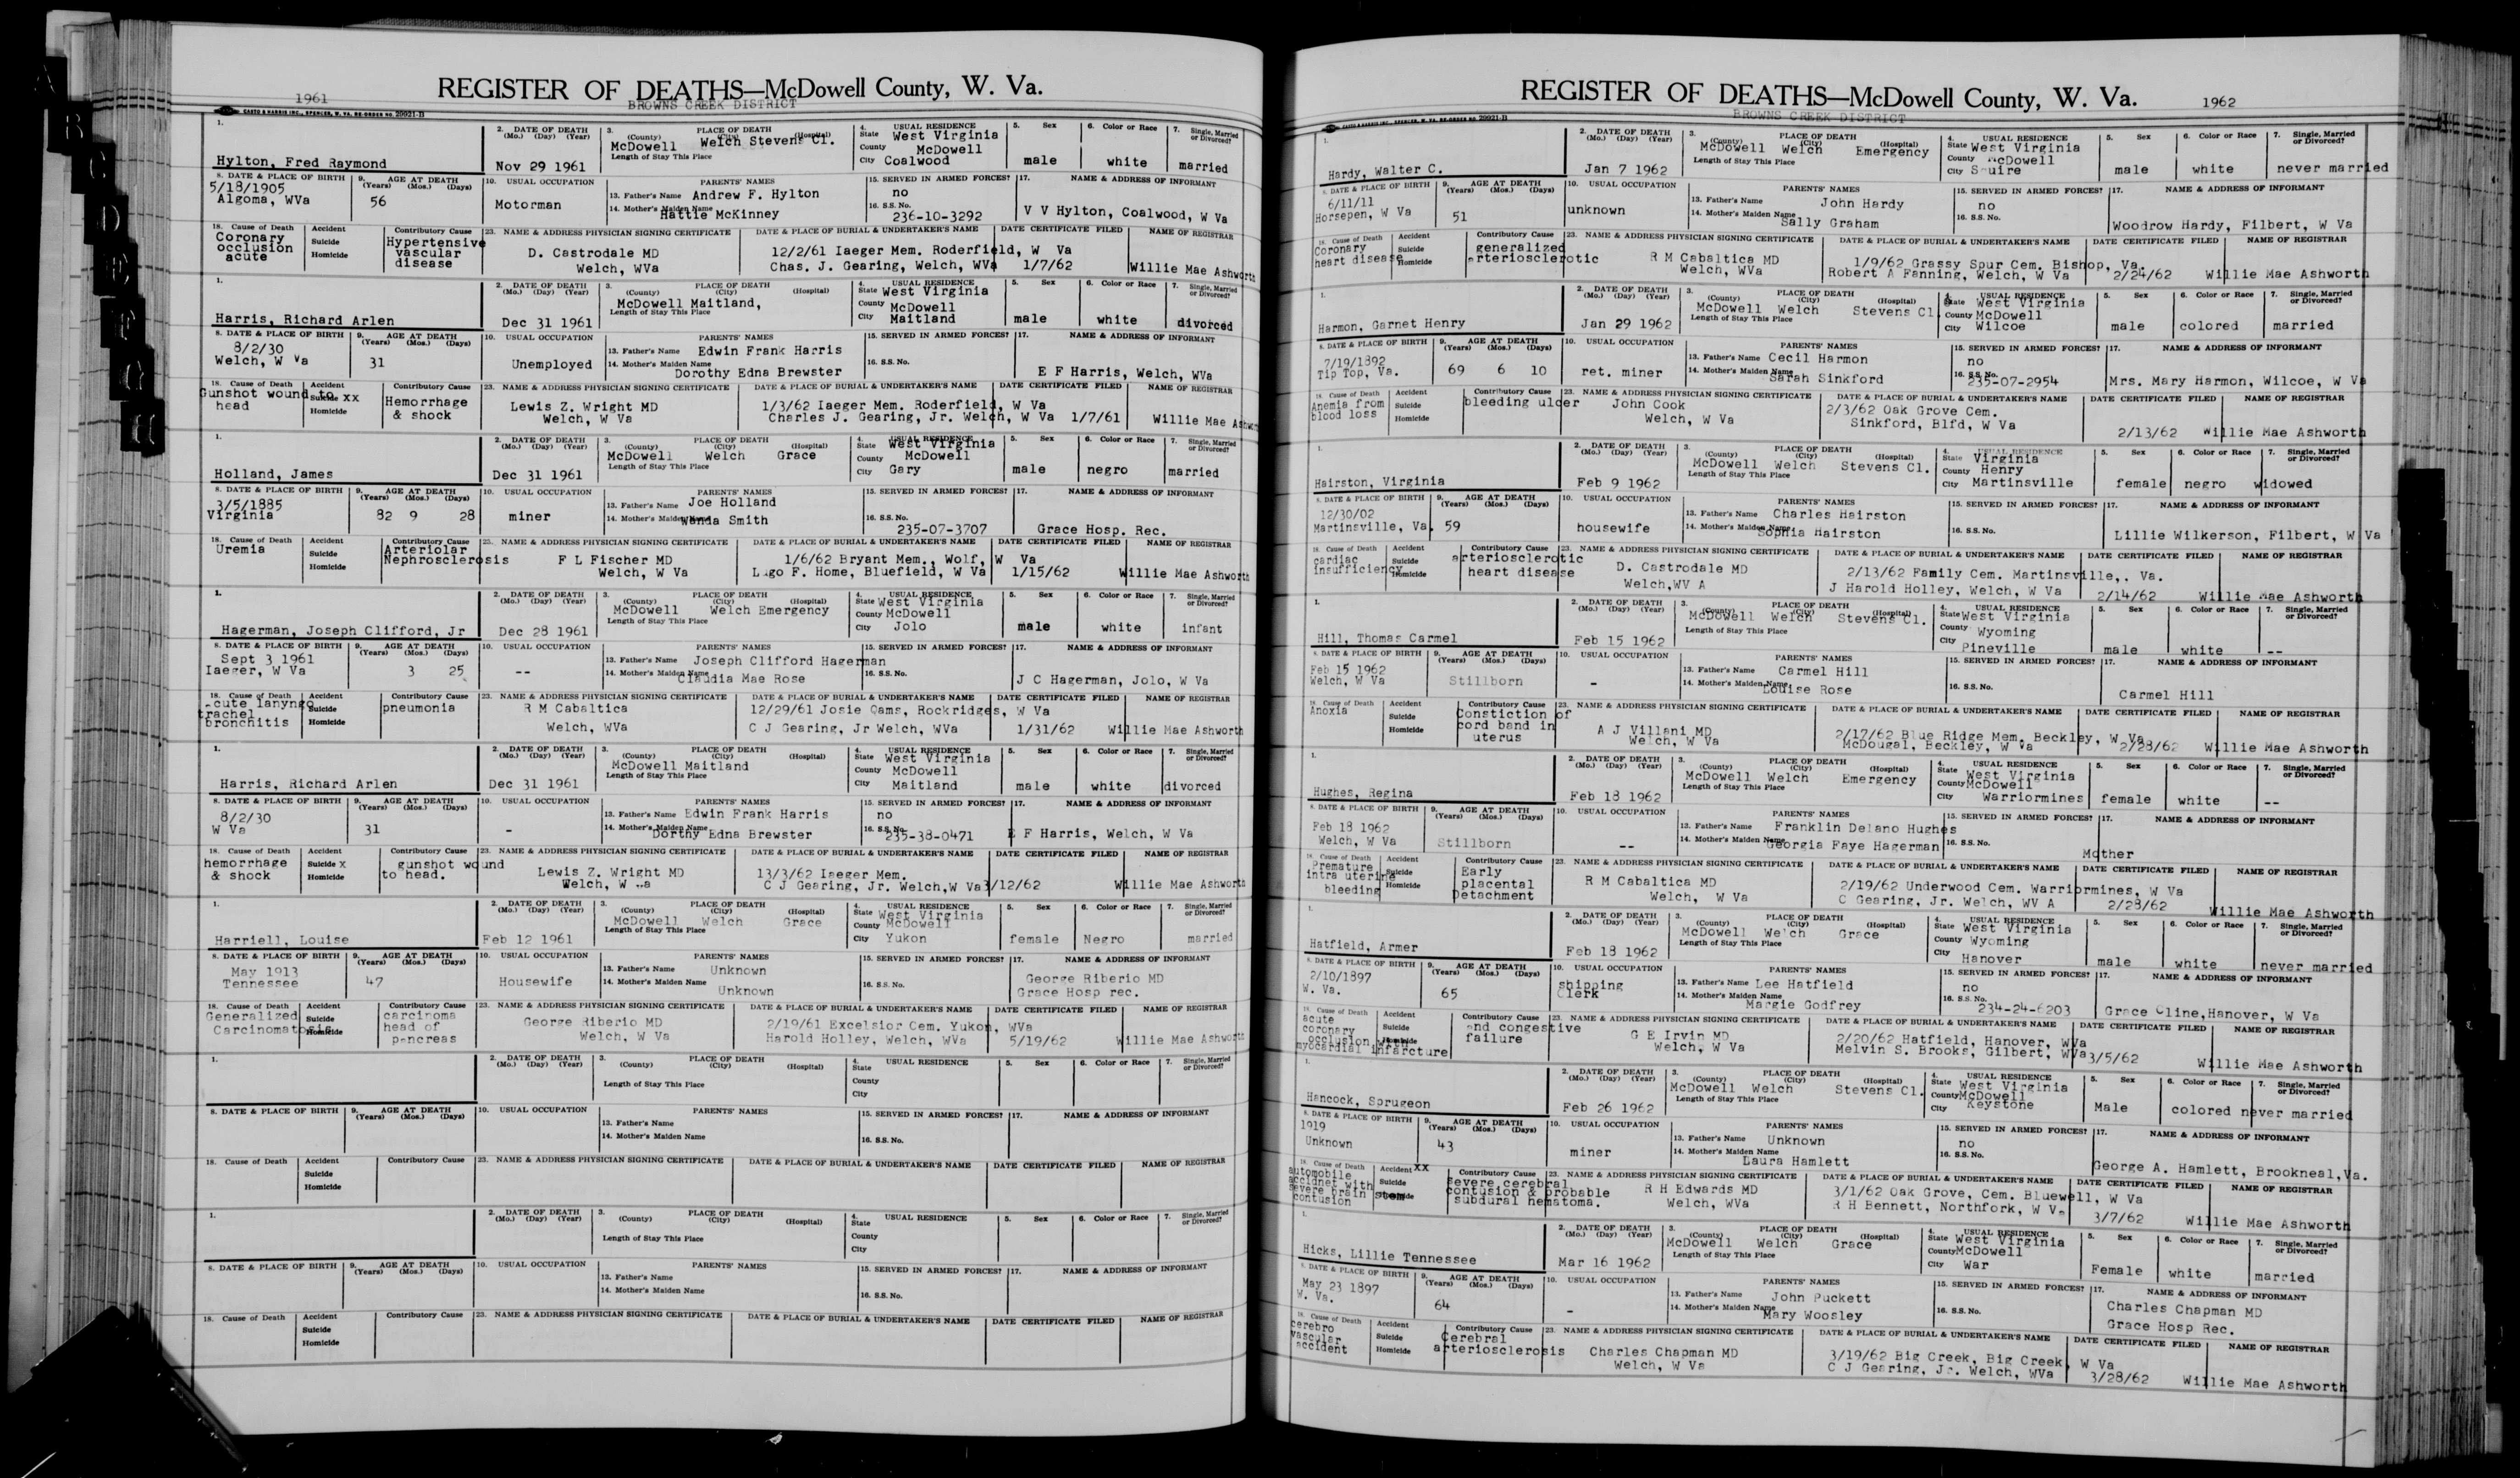 REGISTER OF DEATHS—McDowell County, W. Va.
1961
BROWNS CREEK DISTRICT
CASTO & HARRIS INC., SPENCER, W. VA. RE-ORDER NO. 29921-B
1. Hylton, Fred Raymond
2. DATE OF DEATH (Mo.) (Day) (Year) Nov 29 1961
3. PLACE OF DEATH (County) (City) (Hospital) McDowell Welch Stevens Cl.
Length of Stay This Place
4. USUAL RESIDENCE State West Virginia County McDowell City Coalwood
5. Sex male
6. Color or Race white
7. Single, Married or Divorced? married
8. DATE & PLACE OF BIRTH 5/18/1905 Algoma, WVa
9. AGE AT DEATH (Years) (Mos.) (Days) 56
10. USUAL OCCUPATION Motorman
PARENTS' NAMES
13. Father's Name Andrew F. Hylton
14. Mother's Maiden Name Hattie McKinney
15. SERVED IN ARMED FORCES? no
16. S.S. No. 236-10-3292
17. NAME & ADDRESS OF INFORMANT V V Hylton, Coalwood, W Va
18. Cause of Death Coronary occlusion acute
Accident Suicide Homicide
Contributory Cause Hypertensive vascular disease
23. NAME & ADDRESS PHYSICIAN SIGNING CERTIFICATE D. Castrodale MD Welch, WVa
DATE & PLACE OF BURIAL & UNDERTAKER'S NAME 12/2/61 Iaeger Mem. Roderfield, W Va Chas. J. Gearing, Welch, WVa
DATE CERTIFICATE FILED 1/7/62
NAME OF REGISTRAR Willie Mae Ashworth
1. Harris, Richard Arlen
2. DATE OF DEATH (Mo.) (Day) (Year) Dec 31 1961
3. PLACE OF DEATH (County) (City) (Hospital) McDowell Maitland,
Length of Stay This Place
4. USUAL RESIDENCE State West Virginia County McDowell City Maitland
5. Sex male
6. Color or Race white
7. Single, Married or Divorced? divorced
8. DATE & PLACE OF BIRTH 8/2/30 Welch, W Va
9. AGE AT DEATH (Years) (Mos.) (Days) 31
10. USUAL OCCUPATION Unemployed
PARENTS' NAMES
13. Father's Name Edwin Frank Harris
14. Mother's Maiden Name Dorothy Edna Brewster
15. SERVED IN ARMED FORCES?
16. S.S. No.
17. NAME & ADDRESS OF INFORMANT E F Harris, Welch, WVa
18. Cause of Death Gunshot wound to head
Accident Suicide xx Homicide
Contributory Cause Hemorrhage & shock
23. NAME & ADDRESS PHYSICIAN SIGNING CERTIFICATE Lewis Z. Wright MD Welch, W Va
DATE & PLACE OF BURIAL & UNDERTAKER'S NAME 1/3/62 Iaeger Mem. Roderfield, W Va Charles J. Gearing, Jr. Welch, W Va
DATE CERTIFICATE FILED 1/7/61
NAME OF REGISTRAR Willie Mae Ashwor
1. Holland, James
2. DATE OF DEATH (Mo.) (Day) (Year) Dec 31 1961
3. PLACE OF DEATH (County) (City) (Hospital) McDowell Welch Grace
Length of Stay This Place
4. USUAL RESIDENCE State West Virginia County McDowell City Gary
5. Sex male
6. Color or Race negro
7. Single, Married or Divorced? married
8. DATE & PLACE OF BIRTH 3/5/1885 Virginia
9. AGE AT DEATH (Years) (Mos.) (Days) 82 9 28
10. USUAL OCCUPATION miner
PARENTS' NAMES
13. Father's Name Joe Holland
14. Mother's Maiden Name Wania Smith
15. SERVED IN ARMED FORCES?
16. S.S. No. 235-07-3707
17. NAME & ADDRESS OF INFORMANT Grace Hosp. Rec.
18. Cause of Death Uremia
Accident Suicide Homicide
Contributory Cause Arteriolar Nephrosclerosis
23. NAME & ADDRESS PHYSICIAN SIGNING CERTIFICATE F L Fischer MD Welch, W Va
DATE & PLACE OF BURIAL & UNDERTAKER'S NAME 1/6/62 Bryant Mem., Wolf, W Va F. Home, Bluefield, W Va
DATE CERTIFICATE FILED 1/15/62
NAME OF REGISTRAR Willie Mae Ashworth
1. Hagerman, Joseph Clifford, Jr
2. DATE OF DEATH (Mo.) (Day) (Year) Dec 28 1961
3. PLACE OF DEATH (County) (City) (Hospital) McDowell Welch Emergency
Length of Stay This Place
4. USUAL RESIDENCE State West Virginia County McDowell City Jolo
5. Sex male
6. Color or Race white
7. Single, Married or Divorced? infant
8. DATE & PLACE OF BIRTH Sept 3 1961 Iaeger, W Va
9. AGE AT DEATH (Years) (Mos.) (Days) 3 25
10. USUAL OCCUPATION --
PARENTS' NAMES
13. Father's Name Joseph Clifford Hagerman
14. Mother's Maiden Name Claudia Mae Rose
15. SERVED IN ARMED FORCES?
16. S.S. No.
17. NAME & ADDRESS OF INFORMANT J C Hagerman, Jolo, W Va
18. Cause of Death cute lanyngo trachel bronchitis
Accident Suicide Homicide
Contributory Cause pneumonia
23. NAME & ADDRESS PHYSICIAN SIGNING CERTIFICATE R M Cabaltica Welch, WVa
DATE & PLACE OF BURIAL & UNDERTAKER'S NAME 12/29/61 Josie Qams, Rockridges, W Va C J Gearing, Jr Welch, WVa
DATE CERTIFICATE FILED 1/31/62
NAME OF REGISTRAR Willie Mae Ashworth
1. Harris, Richard Arlen
2. DATE OF DEATH (Mo.) (Day) (Year) Dec 31 1961
3. PLACE OF DEATH (County) (City) (Hospital) McDowell Maitland
Length of Stay This Place
4. USUAL RESIDENCE State West Virginia County McDowell City Maitland
5. Sex male
6. Color or Race white
7. Single, Married or Divorced? divorced
8. DATE & PLACE OF BIRTH 8/2/30 W Va
9. AGE AT DEATH (Years) (Mos.) (Days) 31
10. USUAL OCCUPATION -
PARENTS' NAMES
13. Father's Name Edwin Frank Harris
14. Mother's Maiden Name Dorthy Edna Brewster
15. SERVED IN ARMED FORCES? no
16. S.S. No. 235-38-0471
17. NAME & ADDRESS OF INFORMANT E F Harris, Welch, W Va
18. Cause of Death hemorrhage & shock
Accident Suicide x Homicide
Contributory Cause gunshot wound to head.
23. NAME & ADDRESS PHYSICIAN SIGNING CERTIFICATE Lewis Z. Wright MD Welch, W Va
DATE & PLACE OF BURIAL & UNDERTAKER'S NAME 13/3/62 Iaeger Mem. C J Gearing, Jr. Welch,W Va
DATE CERTIFICATE FILED 3/12/62
NAME OF REGISTRAR Willie Mae Ashworth
1. Harriell, Louise
2. DATE OF DEATH (Mo.) (Day) (Year) Feb 12 1961
3. PLACE OF DEATH (County) (City) (Hospital) McDowell Welch Grace
Length of Stay This Place
4. USUAL RESIDENCE State West Virginia County McDowell City Yukon
5. Sex female
6. Color or Race Negro
7. Single, Married or Divorced? married
8. DATE & PLACE OF BIRTH May 1913 Tennessee
9. AGE AT DEATH (Years) (Mos.) (Days) 47
10. USUAL OCCUPATION Housewife
PARENTS' NAMES
13. Father's Name Unknown
14. Mother's Maiden Name Unknown
15. SERVED IN ARMED FORCES?
16. S.S. No.
17. NAME & ADDRESS OF INFORMANT George Riberio MD Grace Hosp rec.
18. Cause of Death Generalized Carcinomatosis
Accident Suicide Homicide
Contributory Cause carcinoma head of pancreas
23. NAME & ADDRESS PHYSICIAN SIGNING CERTIFICATE George Riberio MD Welch, W Va
DATE & PLACE OF BURIAL & UNDERTAKER'S NAME 2/19/61 Excelsior Cem. Yukon, WVa Harold Holley, Welch, WVa
DATE CERTIFICATE FILED 5/19/62
NAME OF REGISTRAR Willie Mae Ashworth
1.
2. DATE OF DEATH (Mo.) (Day) (Year)
3. PLACE OF DEATH (County) (City) (Hospital)
Length of Stay This Place
4. USUAL RESIDENCE State County City
5. Sex
6. Color or Race
7. Single, Married or Divorced?
8. DATE & PLACE OF BIRTH
9. AGE AT DEATH (Years) (Mos.) (Days)
10. USUAL OCCUPATION
PARENTS' NAMES
13. Father's Name
14. Mother's Maiden Name
15. SERVED IN ARMED FORCES?
16. S.S. No.
17. NAME & ADDRESS OF INFORMANT
18. Cause of Death
Accident Suicide Homicide
Contributory Cause
23. NAME & ADDRESS PHYSICIAN SIGNING CERTIFICATE
DATE & PLACE OF BURIAL & UNDERTAKER'S NAME
DATE CERTIFICATE FILED
NAME OF REGISTRAR
1.
2. DATE OF DEATH (Mo.) (Day) (Year)
3. PLACE OF DEATH (County) (City) (Hospital)
Length of Stay This Place
4. USUAL RESIDENCE State County City
5. Sex
6. Color or Race
7. Single, Married or Divorced?
8. DATE & PLACE OF BIRTH
9. AGE AT DEATH (Years) (Mos.) (Days)
10. USUAL OCCUPATION
PARENTS' NAMES
13. Father's Name
14. Mother's Maiden Name
15. SERVED IN ARMED FORCES?
16. S.S. No.
17. NAME & ADDRESS OF INFORMANT
18. Cause of Death
Accident Suicide Homicide
Contributory Cause
23. NAME & ADDRESS PHYSICIAN SIGNING CERTIFICATE
DATE & PLACE OF BURIAL & UNDERTAKER'S NAME
DATE CERTIFICATE FILED
NAME OF REGISTRAR
REGISTER OF DEATHS—McDowell County, W. Va.
1962
BROWNS CREEK DISTRICT
CASTO & HARRIS INC., SPENCER, W. VA. RE-ORDER NO. 29921-B
1. Hardy, Walter C.
2. DATE OF DEATH (Mo.) (Day) (Year) Jan 7 1962
3. PLACE OF DEATH (County) (City) (Hospital) McDowell Welch Emergency
Length of Stay This Place
4. USUAL RESIDENCE State West Virginia County McDowell City S uire
5. Sex male
6. Color or Race white
7. Single, Married or Divorced? never married
8. DATE & PLACE OF BIRTH 6/11/11 Horsepen, W Va
9. AGE AT DEATH (Years) (Mos.) (Days) 51
10. USUAL OCCUPATION unknown
PARENTS' NAMES
13. Father's Name John Hardy
14. Mother's Maiden Name Sally Graham
15. SERVED IN ARMED FORCES? no
16. S.S. No.
17. NAME & ADDRESS OF INFORMANT Woodrow Hardy, Filbert, W Va
18. Cause of Death Coronary heart disease
Accident Suicide Homicide
Contributory Cause generalized arteriosclerotic
23. NAME & ADDRESS PHYSICIAN SIGNING CERTIFICATE R M Cabaltica MD Welch, WVa
DATE & PLACE OF BURIAL & UNDERTAKER'S NAME 1/9/62 Grassy Spur Cem. Bishop, Va. Robert A Fanning, Welch, W Va
DATE CERTIFICATE FILED 2/24/62
NAME OF REGISTRAR Willie Mae Ashworth
1. Harmon, Garnet Henry
2. DATE OF DEATH (Mo.) (Day) (Year) Jan 29 1962
3. PLACE OF DEATH (County) (City) (Hospital) McDowell Welch Stevens Cl
Length of Stay This Place
4. USUAL RESIDENCE State West Virginia County McDowell City Wilcoe
5. Sex male
6. Color or Race colored
7. Single, Married or Divorced? married
8. DATE & PLACE OF BIRTH 7/19/1892 Tip Top, Va.
9. AGE AT DEATH (Years) (Mos.) (Days) 69 6 10
10. USUAL OCCUPATION ret. miner
PARENTS' NAMES
13. Father's Name Cecil Harmon
14. Mother's Maiden Name Sarah Sinkford
15. SERVED IN ARMED FORCES? no
16. S.S. No. 235-07-2954
17. NAME & ADDRESS OF INFORMANT Mrs. Mary Harmon, Wilcoe, W Va
18. Cause of Death Anemia from blood loss
Accident Suicide Homicide
Contributory Cause bleeding ulder
23. NAME & ADDRESS PHYSICIAN SIGNING CERTIFICATE John Cook Welch, W Va
DATE & PLACE OF BURIAL & UNDERTAKER'S NAME 2/3/62 Oak Grove Cem. Sinkford, Blfd, W Va
DATE CERTIFICATE FILED 2/13/62
NAME OF REGISTRAR Willie Mae Ashworth
1. Hairston, Virginia
2. DATE OF DEATH (Mo.) (Day) (Year) Feb 9 1962
3. PLACE OF DEATH (County) (City) (Hospital) McDowell Welch Stevens Cl.
Length of Stay This Place
4. USUAL RESIDENCE State Virginia County Henry City Martinsville
5. Sex female
6. Color or Race negro
7. Single, Married or Divorced? widowed
8. DATE & PLACE OF BIRTH 12/30/02 Martinsville, Va.
9. AGE AT DEATH (Years) (Mos.) (Days) 59
10. USUAL OCCUPATION housewife
PARENTS' NAMES
13. Father's Name Charles Hairston
14. Mother's Maiden Name Sophia Hairston
15. SERVED IN ARMED FORCES?
16. S.S. No.
17. NAME & ADDRESS OF INFORMANT Lillie Wilkerson, Filbert, W Va
18. Cause of Death cardiac insufficiency
Accident Suicide Homicide
Contributory Cause arteriosclerotic heart disease
23. NAME & ADDRESS PHYSICIAN SIGNING CERTIFICATE D. Castrodale MD Welch,WV A
DATE & PLACE OF BURIAL & UNDERTAKER'S NAME 2/13/62 Family Cem. Martinsville,. Va. J Harold Holley, Welch, W Va
DATE CERTIFICATE FILED 2/14/62
NAME OF REGISTRAR Willie Mae Ashworth
1. Hill, Thomas Carmel
2. DATE OF DEATH (Mo.) (Day) (Year) Feb 15 1962
3. PLACE OF DEATH (County) (City) (Hospital) McDowell Welch Stevens Cl.
Length of Stay This Place
4. USUAL RESIDENCE State West Virginia County Wyoming City Pineville
5. Sex male
6. Color or Race white
7. Single, Married or Divorced? --
8. DATE & PLACE OF BIRTH Feb 15 1962 Welch, W Va
9. AGE AT DEATH (Years) (Mos.) (Days) Stillborn
10. USUAL OCCUPATION -
PARENTS' NAMES
13. Father's Name Carmel Hill
14. Mother's Maiden Name Louise Rose
15. SERVED IN ARMED FORCES?
16. S.S. No.
17. NAME & ADDRESS OF INFORMANT Carmel Hill
18. Cause of Death Anoxia
Accident Suicide Homicide
Contributory Cause Constiction of cord band in uterus
23. NAME & ADDRESS PHYSICIAN SIGNING CERTIFICATE A J Villani MD Welch, W Va
DATE & PLACE OF BURIAL & UNDERTAKER'S NAME 2/17/62 Blue Ridge Mem. Beckley, W Va McDougal, Beckley, W Va
DATE CERTIFICATE FILED 2/28/62
NAME OF REGISTRAR Willie Mae Ashworth
1. Hughes, Regina
2. DATE OF DEATH (Mo.) (Day) (Year) Feb 18 1962
3. PLACE OF DEATH (County) (City) (Hospital) McDowell Welch Emergency
Length of Stay This Place
4. USUAL RESIDENCE State West Virginia County McDowell City Warriormines
5. Sex female
6. Color or Race white
7. Single, Married or Divorced? --
8. DATE & PLACE OF BIRTH Feb 18 1962 Welch, W Va
9. AGE AT DEATH (Years) (Mos.) (Days) Stillborn
10. USUAL OCCUPATION --
PARENTS' NAMES
13. Father's Name Franklin Delano Hughes
14. Mother's Maiden Name Georgia Faye Hagerman
15. SERVED IN ARMED FORCES?
16. S.S. No.
17. NAME & ADDRESS OF INFORMANT Mother
18. Cause of Death Premature intra uterine bleeding
Accident Suicide Homicide
Contributory Cause Early placental Detachment
23. NAME & ADDRESS PHYSICIAN SIGNING CERTIFICATE R M Cabaltica MD Welch, W Va
DATE & PLACE OF BURIAL & UNDERTAKER'S NAME 2/19/62 Underwood Cem. Warriormines, W Va C Gearing, Jr. Welch, WV A
DATE CERTIFICATE FILED 2/28/62
NAME OF REGISTRAR Willie Mae Ashworth
1. Hatfield, Armer
2. DATE OF DEATH (Mo.) (Day) (Year) Feb 18 1962
3. PLACE OF DEATH (County) (City) (Hospital) McDowell Welch Grace
Length of Stay This Place
4. USUAL RESIDENCE State West Virginia County Wyoming City Hanover
5. Sex male
6. Color or Race white
7. Single, Married or Divorced? never married
8. DATE & PLACE OF BIRTH 2/10/1897 W. Va.
9. AGE AT DEATH (Years) (Mos.) (Days) 65
10. USUAL OCCUPATION shipping Clerk
PARENTS' NAMES
13. Father's Name Lee Hatfield
14. Mother's Maiden Name Margie Godfrey
15. SERVED IN ARMED FORCES? no
16. S.S. No. 234-24-6203
17. NAME & ADDRESS OF INFORMANT Grace Cline,Hanover, W Va
18. Cause of Death acute coronary occlusion with myocardial infarcture
Accident Suicide Homicide
Contributory Cause and congestive failure
23. NAME & ADDRESS PHYSICIAN SIGNING CERTIFICATE G E Irvin MD Welch, W Va
DATE & PLACE OF BURIAL & UNDERTAKER'S NAME 2/20/62 Hatfield, Hanover, WVa Melvin S. Brooks, Gilbert, WVa
DATE CERTIFICATE FILED 3/5/62
NAME OF REGISTRAR Willie Mae Ashworth
1. Hancock, Sprugeon
2. DATE OF DEATH (Mo.) (Day) (Year) Feb 26 1962
3. PLACE OF DEATH (County) (City) (Hospital) McDowell Welch Stevens Cl.
Length of Stay This Place
4. USUAL RESIDENCE State West Virginia County McDowell City Keystone
5. Sex Male
6. Color or Race colored
7. Single, Married or Divorced? never married
8. DATE & PLACE OF BIRTH 1919 Unknown
9. AGE AT DEATH (Years) (Mos.) (Days) 43
10. USUAL OCCUPATION miner
PARENTS' NAMES
13. Father's Name Unknown
14. Mother's Maiden Name Laura Hamlett
15. SERVED IN ARMED FORCES? no
16. S.S. No.
17. NAME & ADDRESS OF INFORMANT George A. Hamlett, Brookneal,Va.
18. Cause of Death automobile accidnet with severe brain stem contusion
Accident XX Suicide Homicide
Contributory Cause severe cerebral contusion & probable subdural hematoma.
23. NAME & ADDRESS PHYSICIAN SIGNING CERTIFICATE R H Edwards MD Welch, WVa
DATE & PLACE OF BURIAL & UNDERTAKER'S NAME 3/1/62 Oak Grove, Cem. Bluewell, W Va R H Bennett, Northfork, W Va
DATE CERTIFICATE FILED 3/7/62
NAME OF REGISTRAR Willie Mae Ashworth
1. Hicks, Lillie Tennessee
2. DATE OF DEATH (Mo.) (Day) (Year) Mar 16 1962
3. PLACE OF DEATH (County) (City) (Hospital) McDowell Welch Grace
Length of Stay This Place
4. USUAL RESIDENCE State West Virginia County McDowell City War
5. Sex Female
6. Color or Race white
7. Single, Married or Divorced? married
8. DATE & PLACE OF BIRTH May 23 1897 W. Va.
9. AGE AT DEATH (Years) (Mos.) (Days) 64
10. USUAL OCCUPATION -
PARENTS' NAMES
13. Father's Name John Puckett
14. Mother's Maiden Name Mary Woosley
15. SERVED IN ARMED FORCES?
16. S.S. No.
17. NAME & ADDRESS OF INFORMANT Charles Chapman MD Grace Hosp Rec.
18. Cause of Death cerebro vascular accident
Accident Suicide Homicide
Contributory Cause Cerebral arteriosclerosis
23. NAME & ADDRESS PHYSICIAN SIGNING CERTIFICATE Charles Chapman MD Welch, W Va
DATE & PLACE OF BURIAL & UNDERTAKER'S NAME 3/19/62 Big Creek, Big Creek, W Va C J Gearing, Jr. Welch, WVa
DATE CERTIFICATE FILED 3/28/62
NAME OF REGISTRAR Willie Mae Ashworth
B
C
D
E
F
G
H